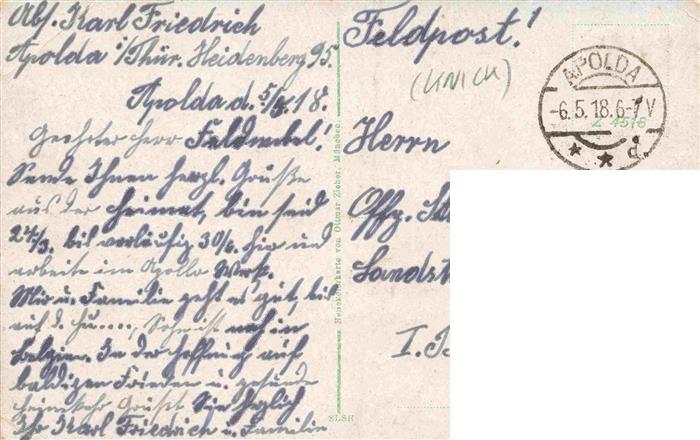 Abs. Karl Friedrich
Apolda i/Thür. Heidenberg 95.
Apolda d. 5/5. 18.
Geehrter Herr Feldwebel!
Sende Ihnen herzl. Grüße
aus der Heimat, bin seid
24/3. bis vorläufig 30/6. hier und
arbeite im Apollo Werk.
Mir u. Familie geht es gut, bis
auf d. Hu...., Sohn ist noch in
Belgien. In der Hoffnung auf
baldigen Frieden u. gesunde
Heimkehr Grüßt Sie herzlich
Ihr Karl Friedrich u. Familie
Neuheitkarte von Ottmar Zieher, München.
SLSH
Feldpost!
(UNICH)
APOLDA
-6.5.18.6-7V
* * d.
Z 4518
Herrn
Offz.
Landst
I.